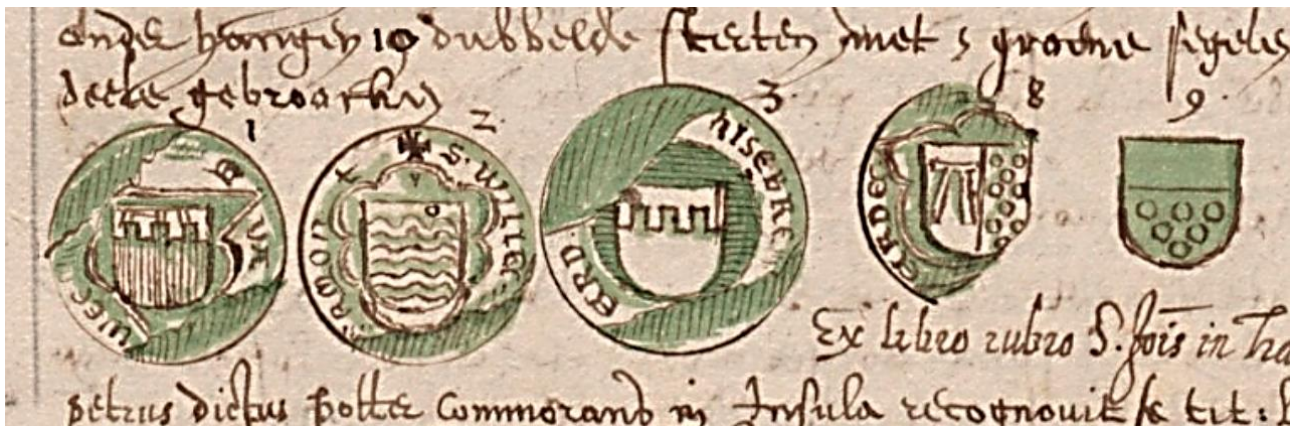 onder hangen 10 dubbelde sterten met 5 groene segels
deele gebroocken
1 2 3 8 9
S. WILLEC
HISEBRE
ERD
ERDE
Ex libro rubro S. Jois in Ha
petrus dictus potter commorans in Insula recognovit se tit: